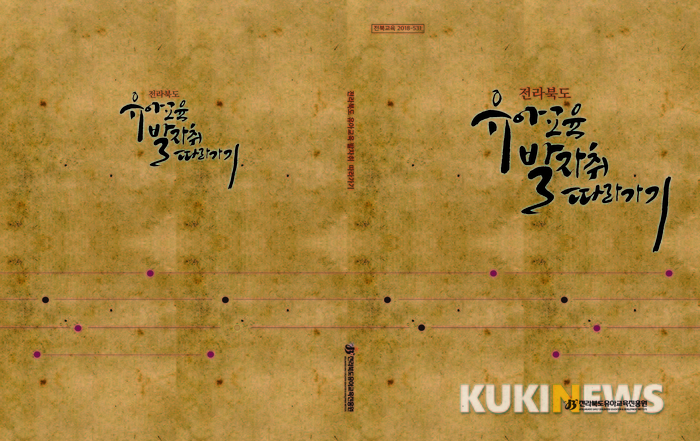 전라북도
유아교육
발자취
따라가기
전라북도 유아교육 발자취 따라가기
전라북도유아교육진흥원
전북교육 2018-531
전라북도
유아교육
발자취
따라가기
전라북도유아교육진흥원
KUKINEWS